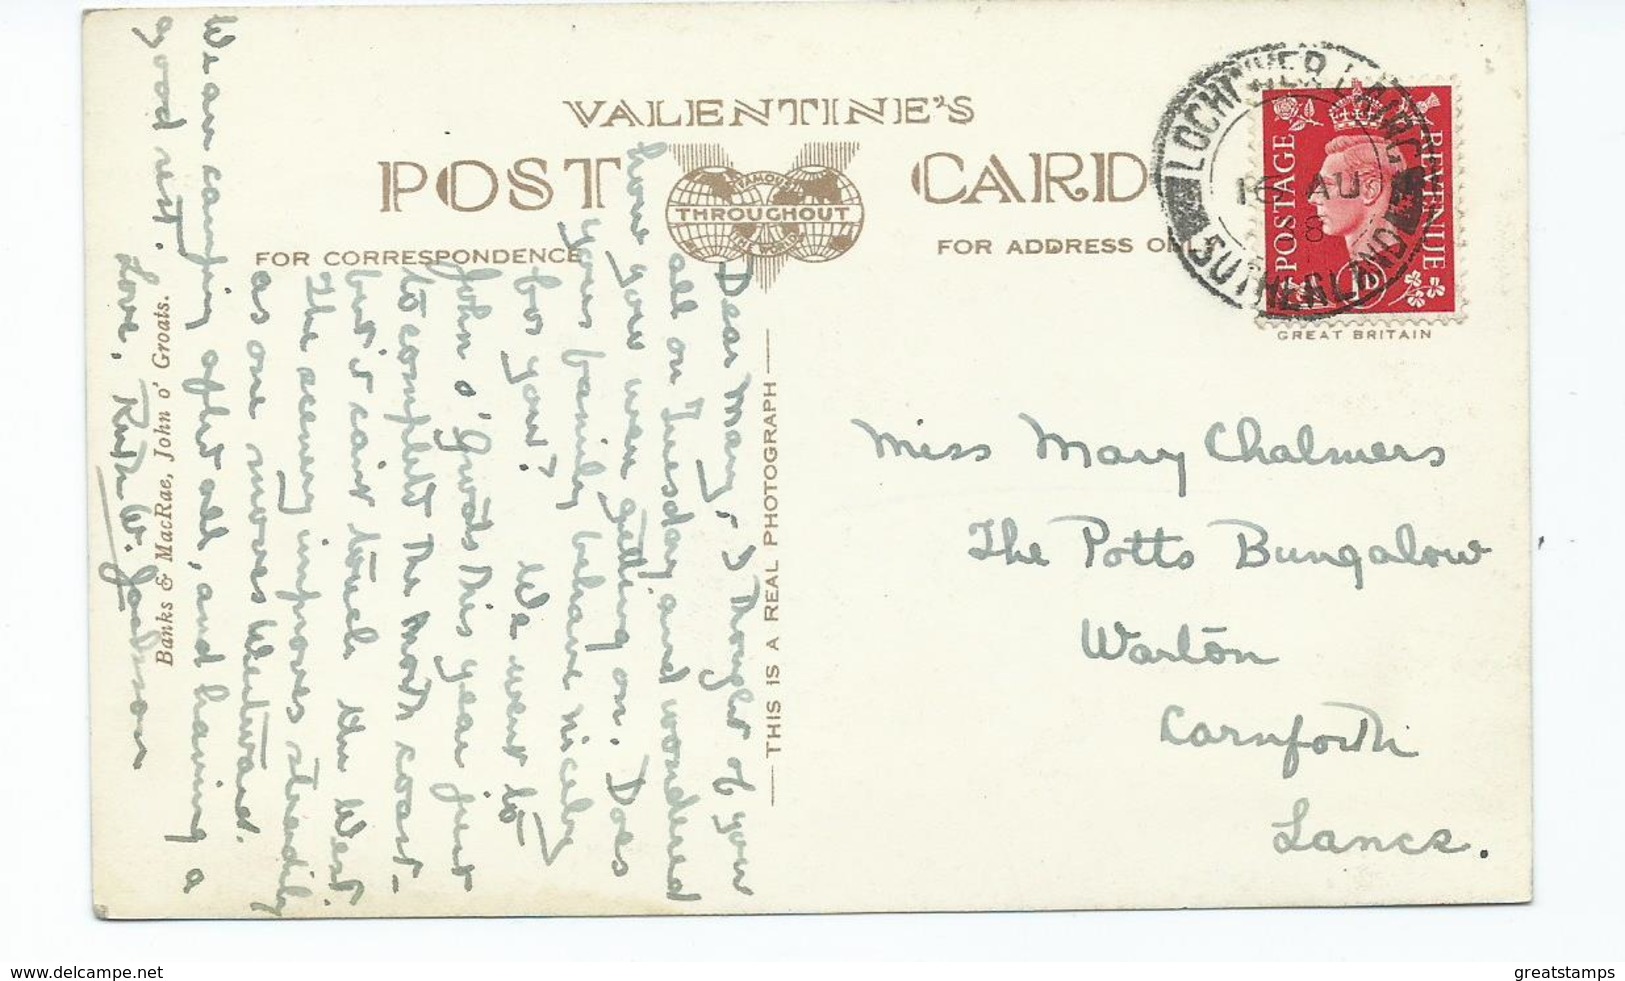 VALENTINE'S
POST CARD
FAMOUS
THROUGHOUT
THE WORLD
FOR CORRESPONDENCE
FOR ADDRESS ONLY
Dear Mary, I thought of you
all on Tuesday, and wondered
how you were getting on. Does
your family behave nicely
for you? We went to
John o' Groats this year just
to complete the north coast -
but it can't touch the West.
The scenery improves steadily
as one moves Westward.
We are camping after all, and having a
good rest.
Love, Ruth W. Jackson
THIS IS A REAL PHOTOGRAPH
Banks & MacRae, John o' Groats.
LOCHINVER LAIRG
16 AU
SUTHERLAND
POSTAGE
REVENUE
1D
GREAT BRITAIN
Miss Mary Chalmers
The Potts Bungalow
Warton
Carnforth
Lancs.
www.delcampe.net
greatstamps